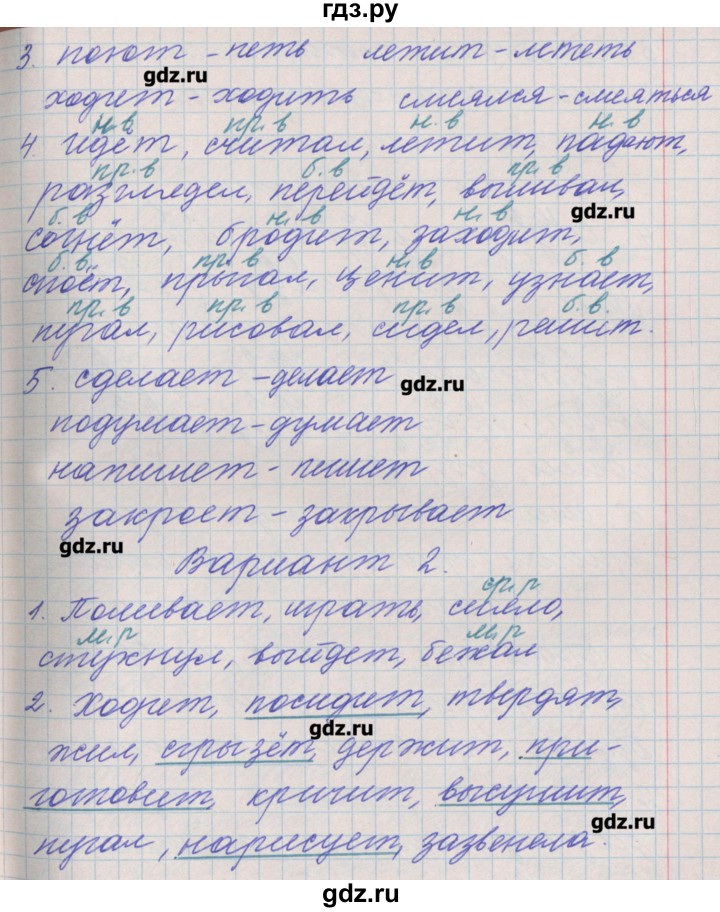 гдз.ру
3. поют - петь летит - лететь
gdz.ru
ходит - ходить смеялся - смеяться
н.в пр.в н.в н.в
4. Идёт, считал, летит, падают,
пр.в б.в пр.в
разглядел, перейдёт, выпивал,
gdz.ru
б.в н.в н.в
согнёт, бродит, заходит,
б.в. пр.в н.в б.в
споёт, прыгал, ценит, узнает,
пр.в пр.в пр.в б.в.
пугал, рисовал, сидел, решит.
5. сделает - делает
gdz.ru
подумает - думает
напишет - пишет
закроет - закрывает
gdz.ru
Вариант 2.
ср.р
1. Поливает, играть, сияло,
м.р м.р
стухнул, выйдет, бежал
2. Ходит, посидит, твердят,
gdz.ru
жил, сгрызёт, держит, при-
готовит, кричит, высушит,
gdz.ru
пугал, нарисует, зазвенела.
gdz.ru